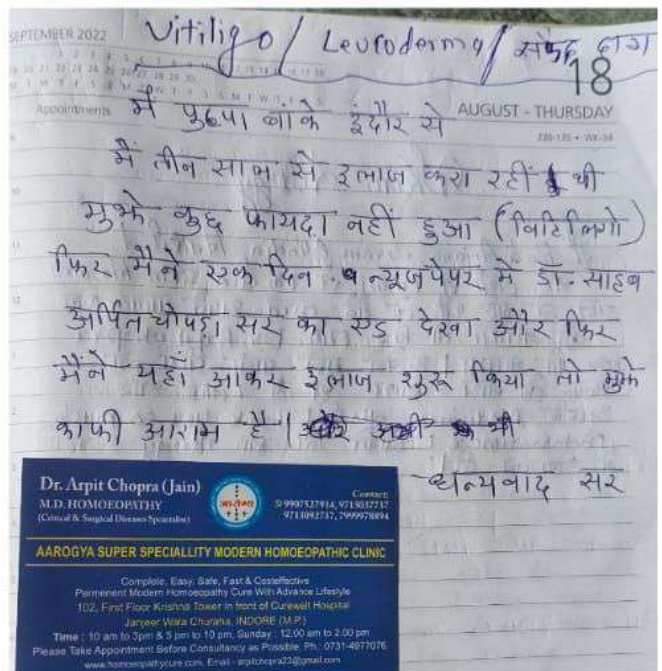 SEPTEMBER 2022
Vitiligo / Leucoderma / सफेद दाग
18
Appointments
AUGUST - THURSDAY
मैं पुष्पा बांके इंदौर से
मैं तीन साल से इलाज करा रहीं थी
मुझे कुछ फायदा नहीं हुआ (विटिलिगो)
फिर मैंने एक दिन न्यूजपेपर में डॉ. साहब
अर्पित चोपड़ा सर का एड देखा और फिर
मैंने यहाँ आकर इलाज शुरू किया तो मुझे
काफी आराम है |
धन्यवाद सर
Dr. Arpit Chopra (Jain)
M.D. HOMOEOPATHY
(Critical & Surgical Diseases Specialist)
आरोग्य
Contact:
9907527914, 9713037737
9713092737, 7999978894
AAROGYA SUPER SPECIALLITY MODERN HOMOEOPATHIC CLINIC
Complete, Easy, Safe, Fast & Costeffective
Permenent Modern Homoeopathy Cure With Advance Lifestyle
102, First Floor Krishna Tower in front of Curewell Hospital
Janjeer Wala Churaha, INDORE (M.P.)
Time : 10 am to 5pm & 5 pm to 10 pm, Sunday : 12.00 am to 2.00 pm
Please Take Appointment Before Consultancy as Possible. Ph.: 0731-4977076
www.homoeopathycure.com, Email - arpitchopra23@gmail.com